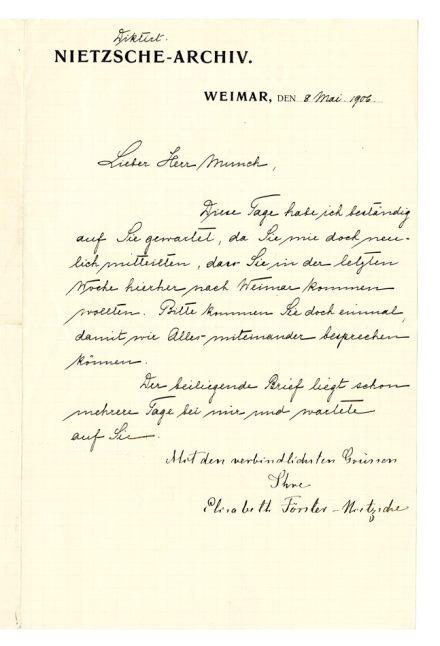 Diktirt.
NIETZSCHE-ARCHIV.
WEIMAR, DEN 8. Mai. 1906.
Lieber Herr Munch,
Diese Tage habe ich beständig
auf Sie gewartet, da Sie mir doch neu-
lich mitteilten, dass Sie in der letzten
Woche hierher nach Weimar kommen
wollten. Bitte kommen Sie doch einmal,
damit wir Alles miteinander besprechen
können.
Der beiliegende Brief liegt schon
mehrere Tage bei mir und wartete
auf Sie.
Mit den verbindlichsten Grüssen
Ihre
Elisabeth Förster-Nietzsche